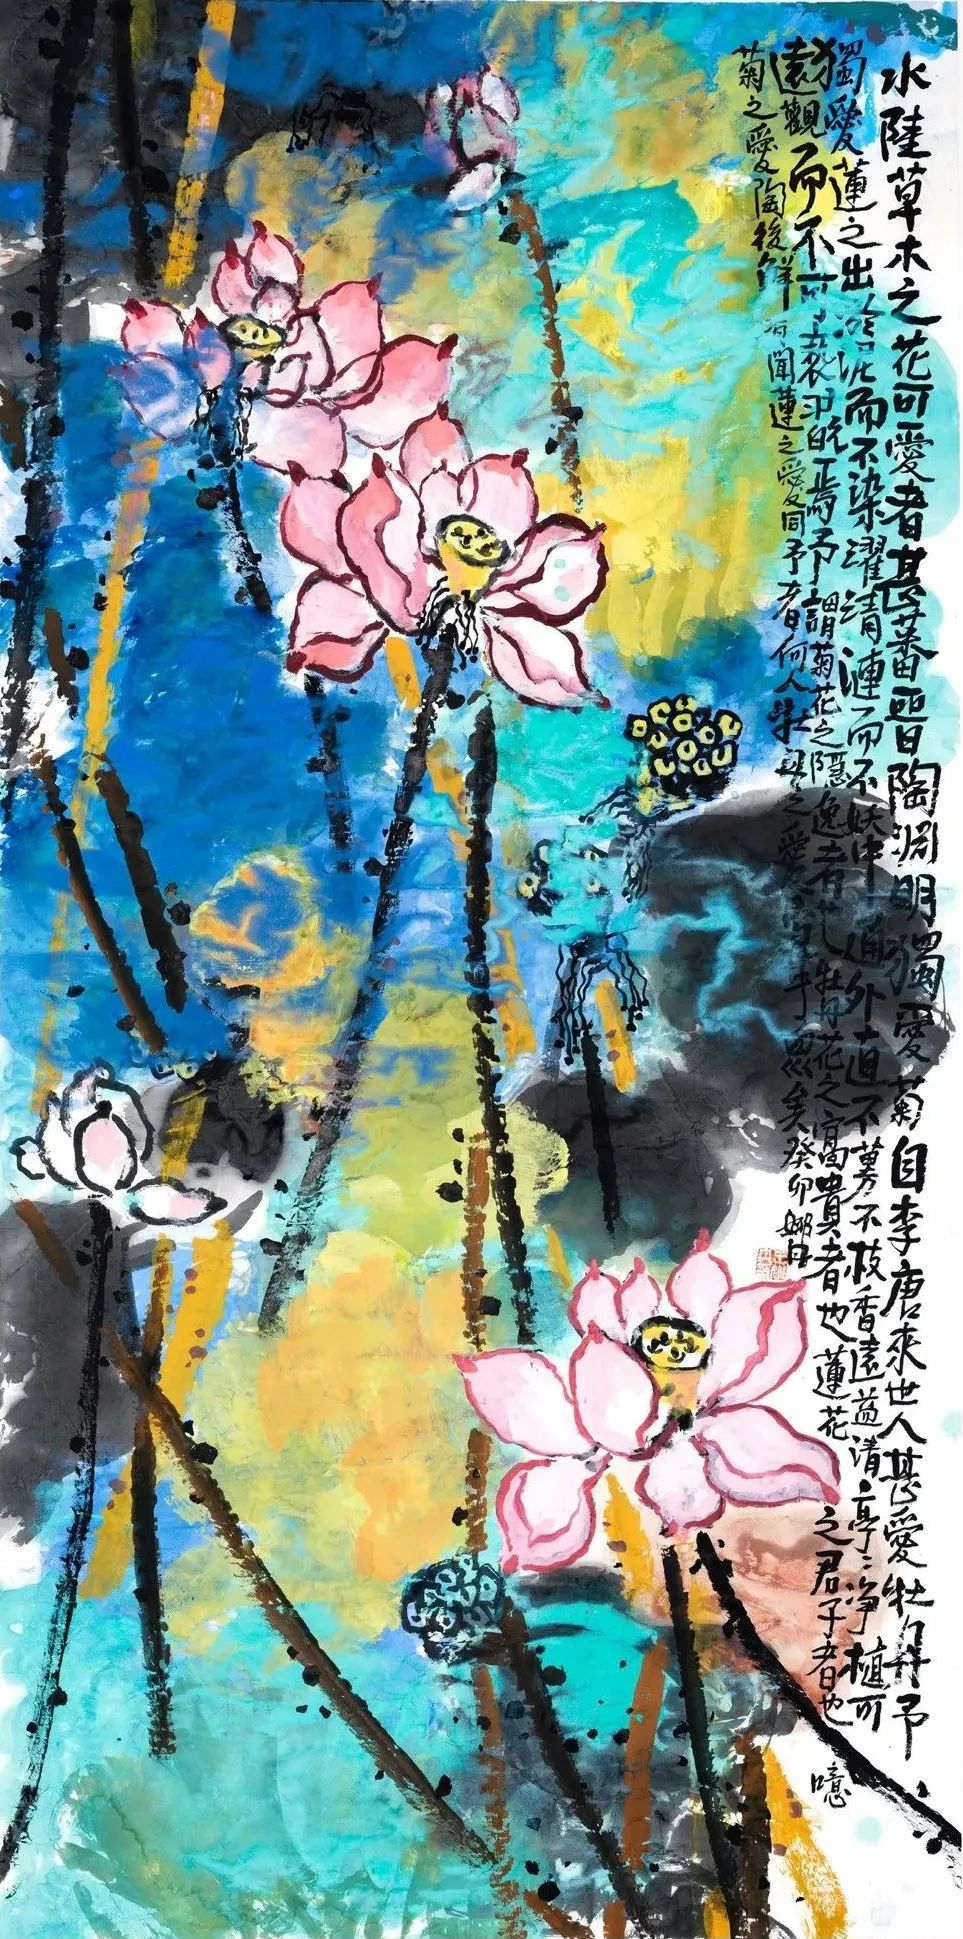 水陸草木之花可愛者甚蕃晉陶淵明獨愛菊自李唐來世人甚愛牡丹予
獨愛蓮之出淤泥而不染濯清漣而不妖中通外直不蔓不枝香遠益清亭亭净植可
遠觀而不可焉予謂菊花之隱逸者也牡丹花之富貴者也蓮花之君子者也噫
菊之愛陶後鮮有聞蓮之愛同予者何人牡丹之愛宜乎眾矣癸卯娜